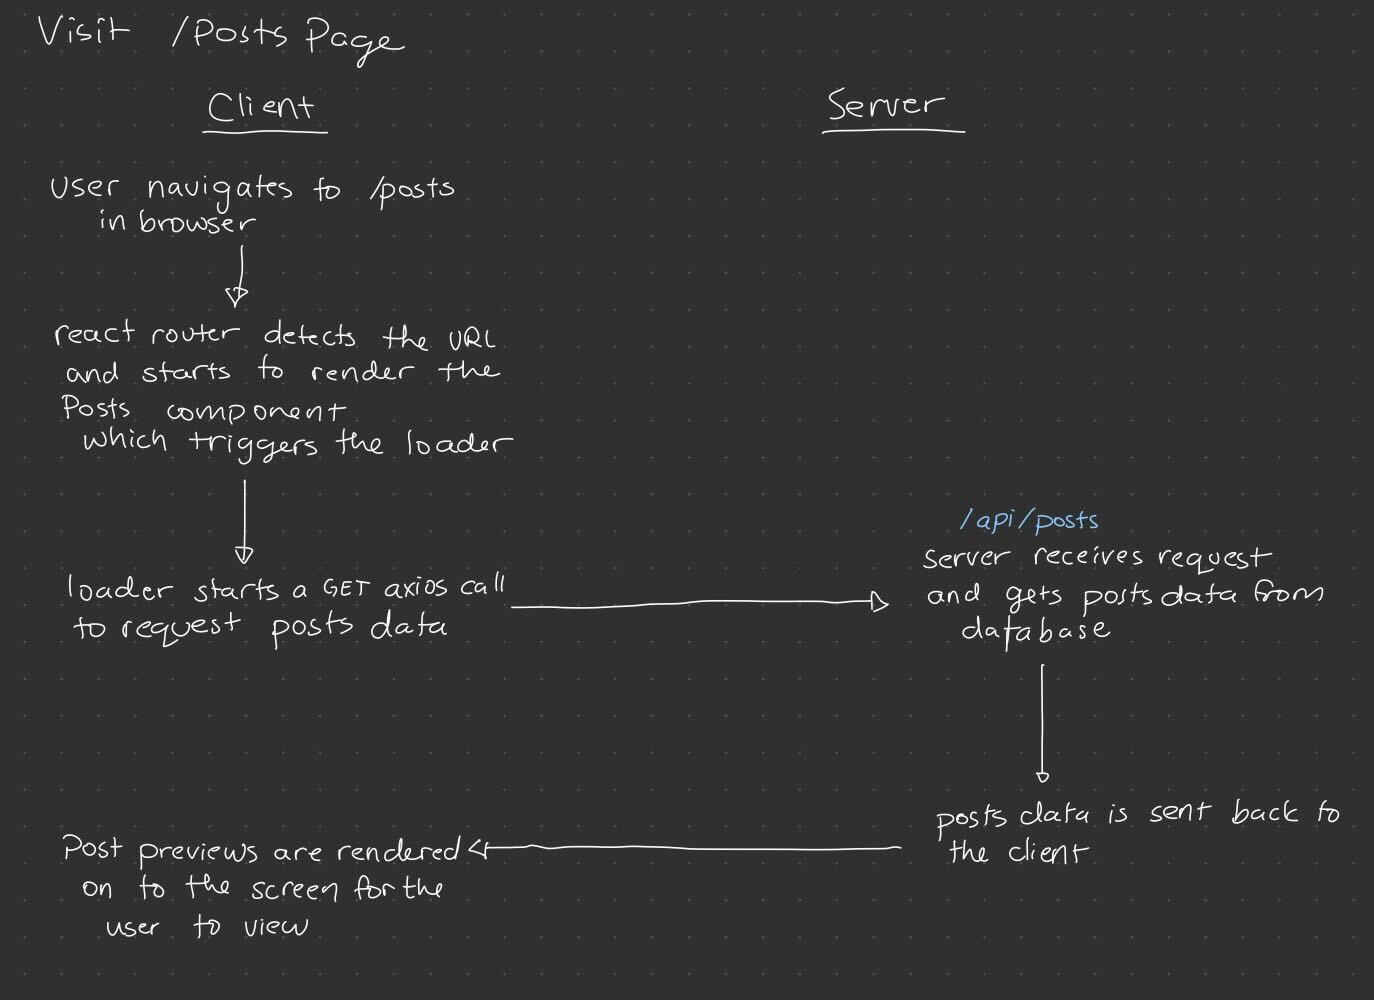 Visit /Posts Page
Client
Server
User navigates to /posts
in browser
react router detects the URL
and starts to render the
Posts component
which triggers the loader
loader starts a GET axios call
to request posts data
/api/posts
server receives request
and gets posts data from
database
posts data is sent back to
the client
Post previews are rendered
on to the screen for the
user to view